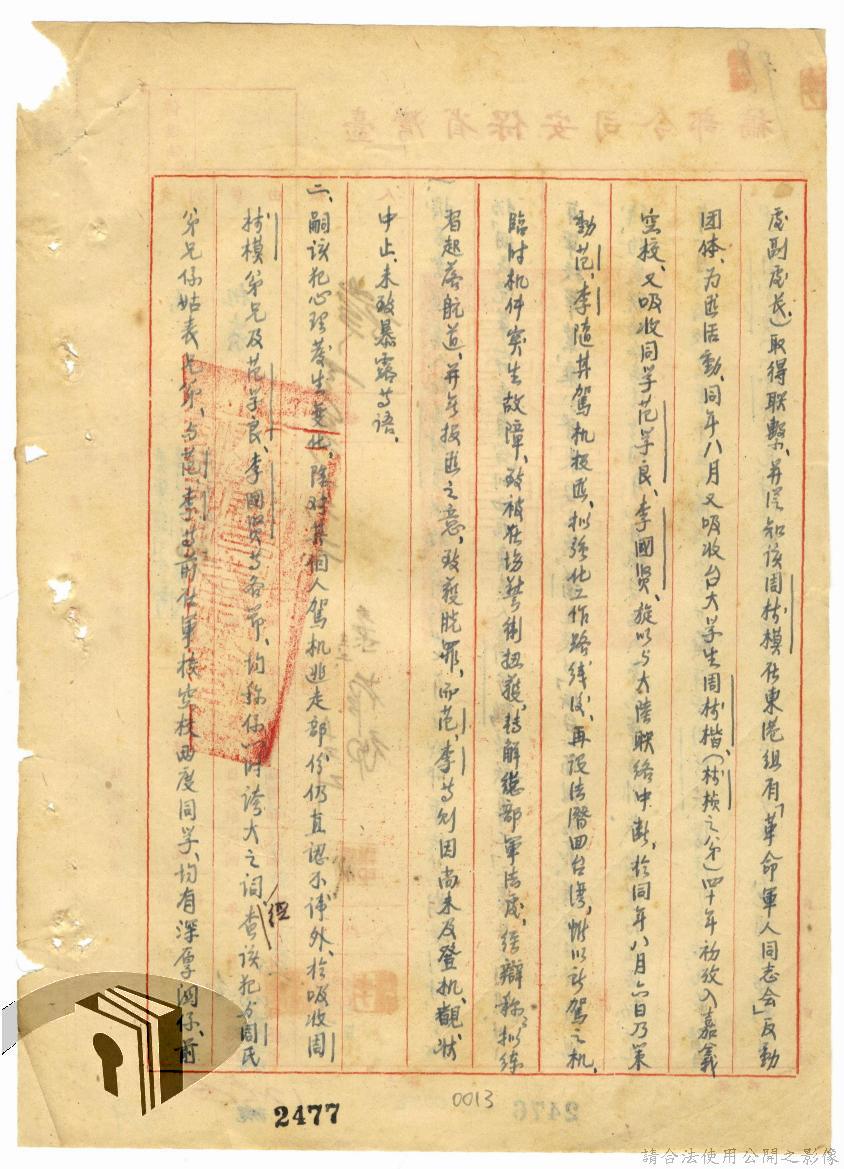 處副處長)取得联繫、并悉知该周栲模在東港組有「革命軍人同志会」反動
团体、为匪活動、同年八月又吸收台大学生周栲楷、(栲模之弟)四十年初考入嘉義
空校、又吸收同学范学良、李國贤、旋以与大陸联络中断，於同年八月六日乃策
動范、李隨其駕机投匪、拟強化工作路线後、再设法潛回台湾，惟以所駕之机、
臨时机件突生故障、致被在場警衛扭獲、转解總部軍法處，经辯称：拟练
習起落航道、并无投匪之意、致獲脫罪、而范、李等則因尚未及登机、觀状
中止、未致暴露等语、
二、嗣该犯心理发生变化、除对其個人駕机逃走部份仍直認不讳外、於吸收周
栲模弟兄及范学良、李國贤等各節、均称係一时誇大之词 經查该犯与周民
弟兄係姑表兄弟、与范、李等前在軍校空校两度同学、均有深厚関係、前
臺灣省保安司令部稿
2477
0013
2476
請合法使用公開之影像